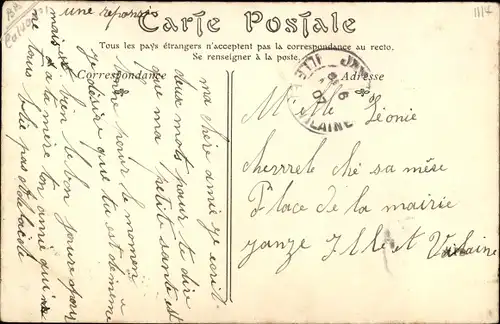 une reponse
Carte Postale
Tous les pays étrangers n'acceptent pas la correspondance au recto.
Se renseigner à la poste.
Correspondance
Adresse
ma chère amie je écrit
deux mots pour te dire
que ma petite santé est
bonne pour le moment
je désire que tu est de meme
bien le bon jour pour
mais a ta mère ton amie qui
ne
pas
ILLE ET VILAINE
Mlle Léonie
cherrele ché sa mère
Place de la mairie
janze Ille et Vilaine
1117